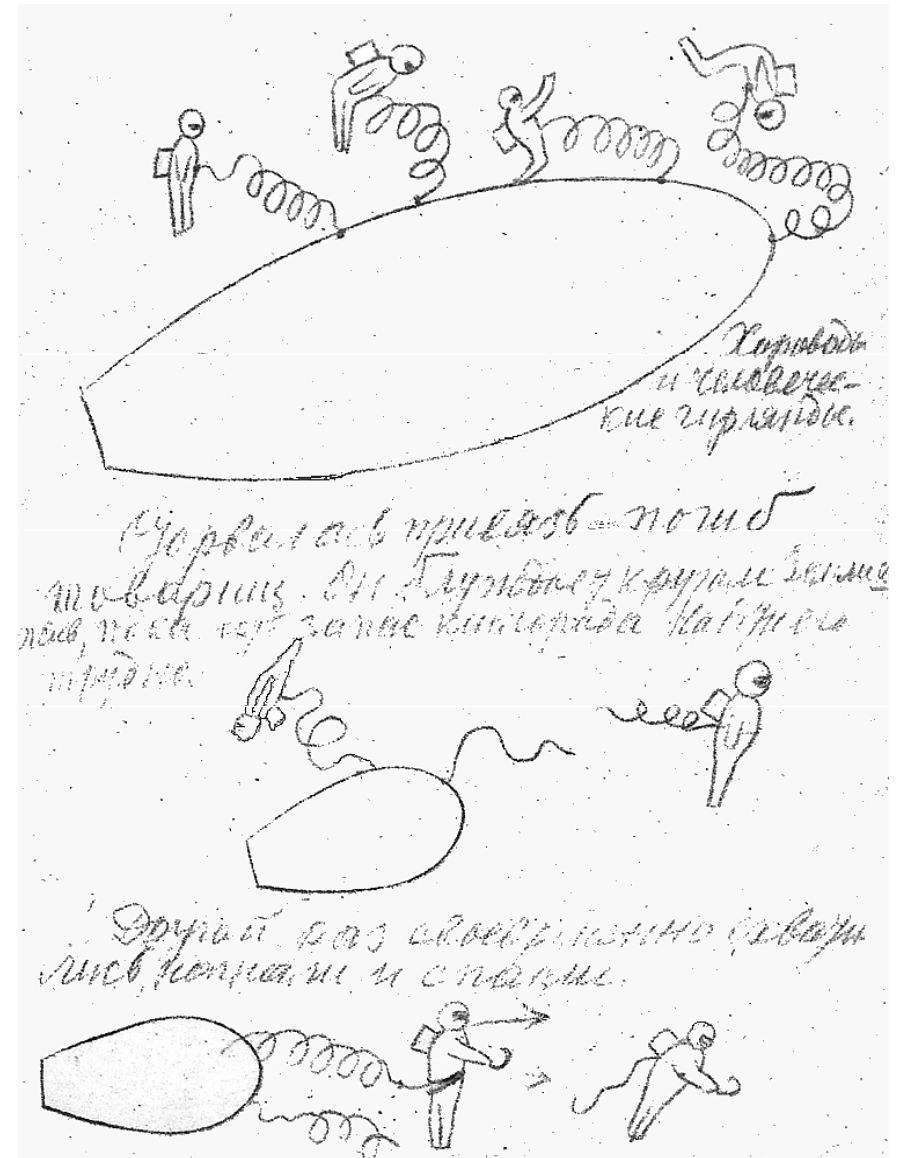 Хороводы
и человечес-
кие гирлянды.
привязь – погиб
товарищ. Он блуждает кругом Земли
жив, пока запас кислорода Найти его
трудно.
Другой раз своевременно схвати
лись, нагнали и спасли.